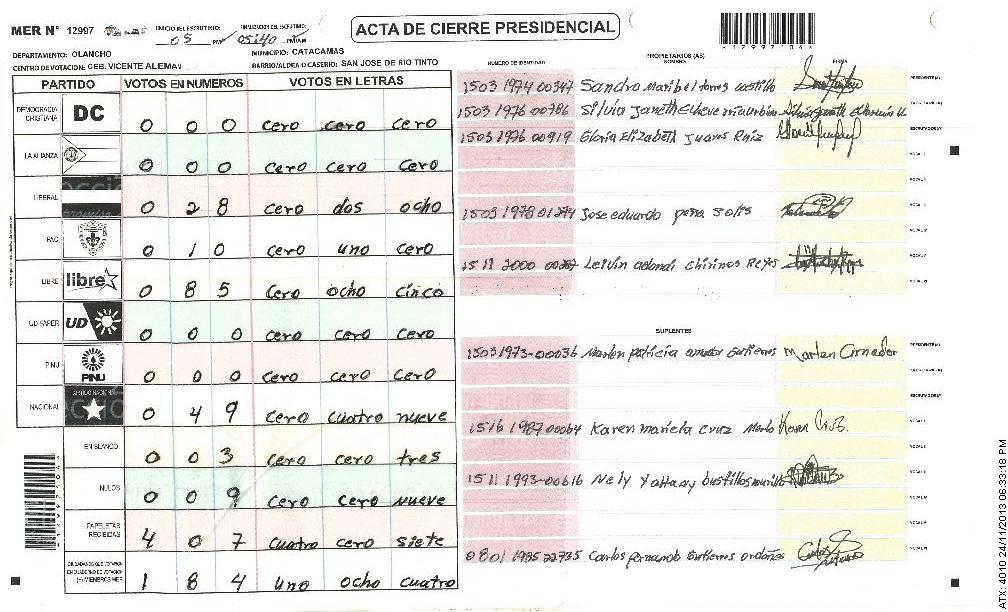 MER Nº 12997
INICIO DEL ESCRUTINIO: 05
FINALIZACION DEL ESCRUTINIO: 05:40
ACTA DE CIERRE PRESIDENCIAL
DEPARTAMENTO: OLANCHO MUNICIPIO: CATACAMAS
CENTRO DE VOTACION: CEB. VICENTE ALEMAN BARRIO/ALDEA O CASERIO: SAN JOSE DE RIO TINTO
PARTIDO VOTOS EN NUMEROS VOTOS EN LETRAS
DEMOCRACIA CRISTIANA DC 0 0 0 cero cero cero
LA ALIANZA 0 0 0 cero cero cero
LIBERAL 0 2 8 cero dos ocho
PAC 0 1 0 cero uno cero
LIBRE libre 0 8 5 cero ocho cinco
UD-FAPER UD 0 0 0 cero cero cero
PINU PINU 0 0 0 cero cero cero
NACIONAL 0 4 9 cero cuatro nueve
EN BLANCO 0 0 3 cero cero tres
NULOS 0 0 9 cero cero nueve
PAPELETAS RECIBIDAS 4 0 7 cuatro cero siete
CIUDADANOS QUE VOTARON EN CUADERNO DE VOTACION (+) MIEMBROS MER 1 8 4 uno ocho cuatro
PROPIETARIOS (AS)
NUMERO DE IDENTIDAD NOMBRE FIRMA
1503 1974 00347 Sandra Maribel torres castillo
1503 1976 00786 Silvia Janeth
1503 1976 00919 Gloria Elizabeth Juares Ruiz
1503 1978 01274 Jose eduardo peña Solis
15 11 2000 Leivin adonai chirinos Reyes
SUPLENTES
1503 1973-00036 Marlen patricia amador Gutierres Marlen Amador
1516 1987 00064 Karen mariela cruz Merlo Karen Cruz.
1511 1993-00616 Nely Yohany bustillos murillo
0801 1985 22735 Carlos fernando Gutierres ordoñes
ATX: 4010 24/11/2013 06:33:18 PM